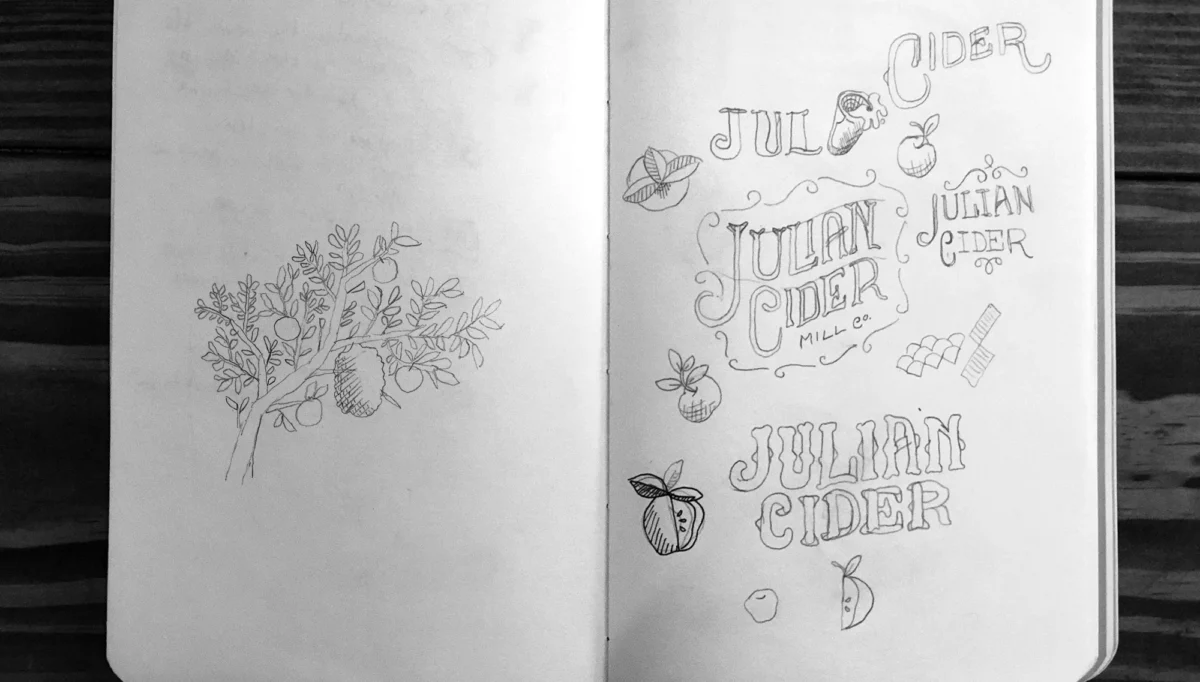 CIDER
JUL
JULIAN
CIDER
JULIAN
CIDER
MILL Co.
JULIAN
CIDER